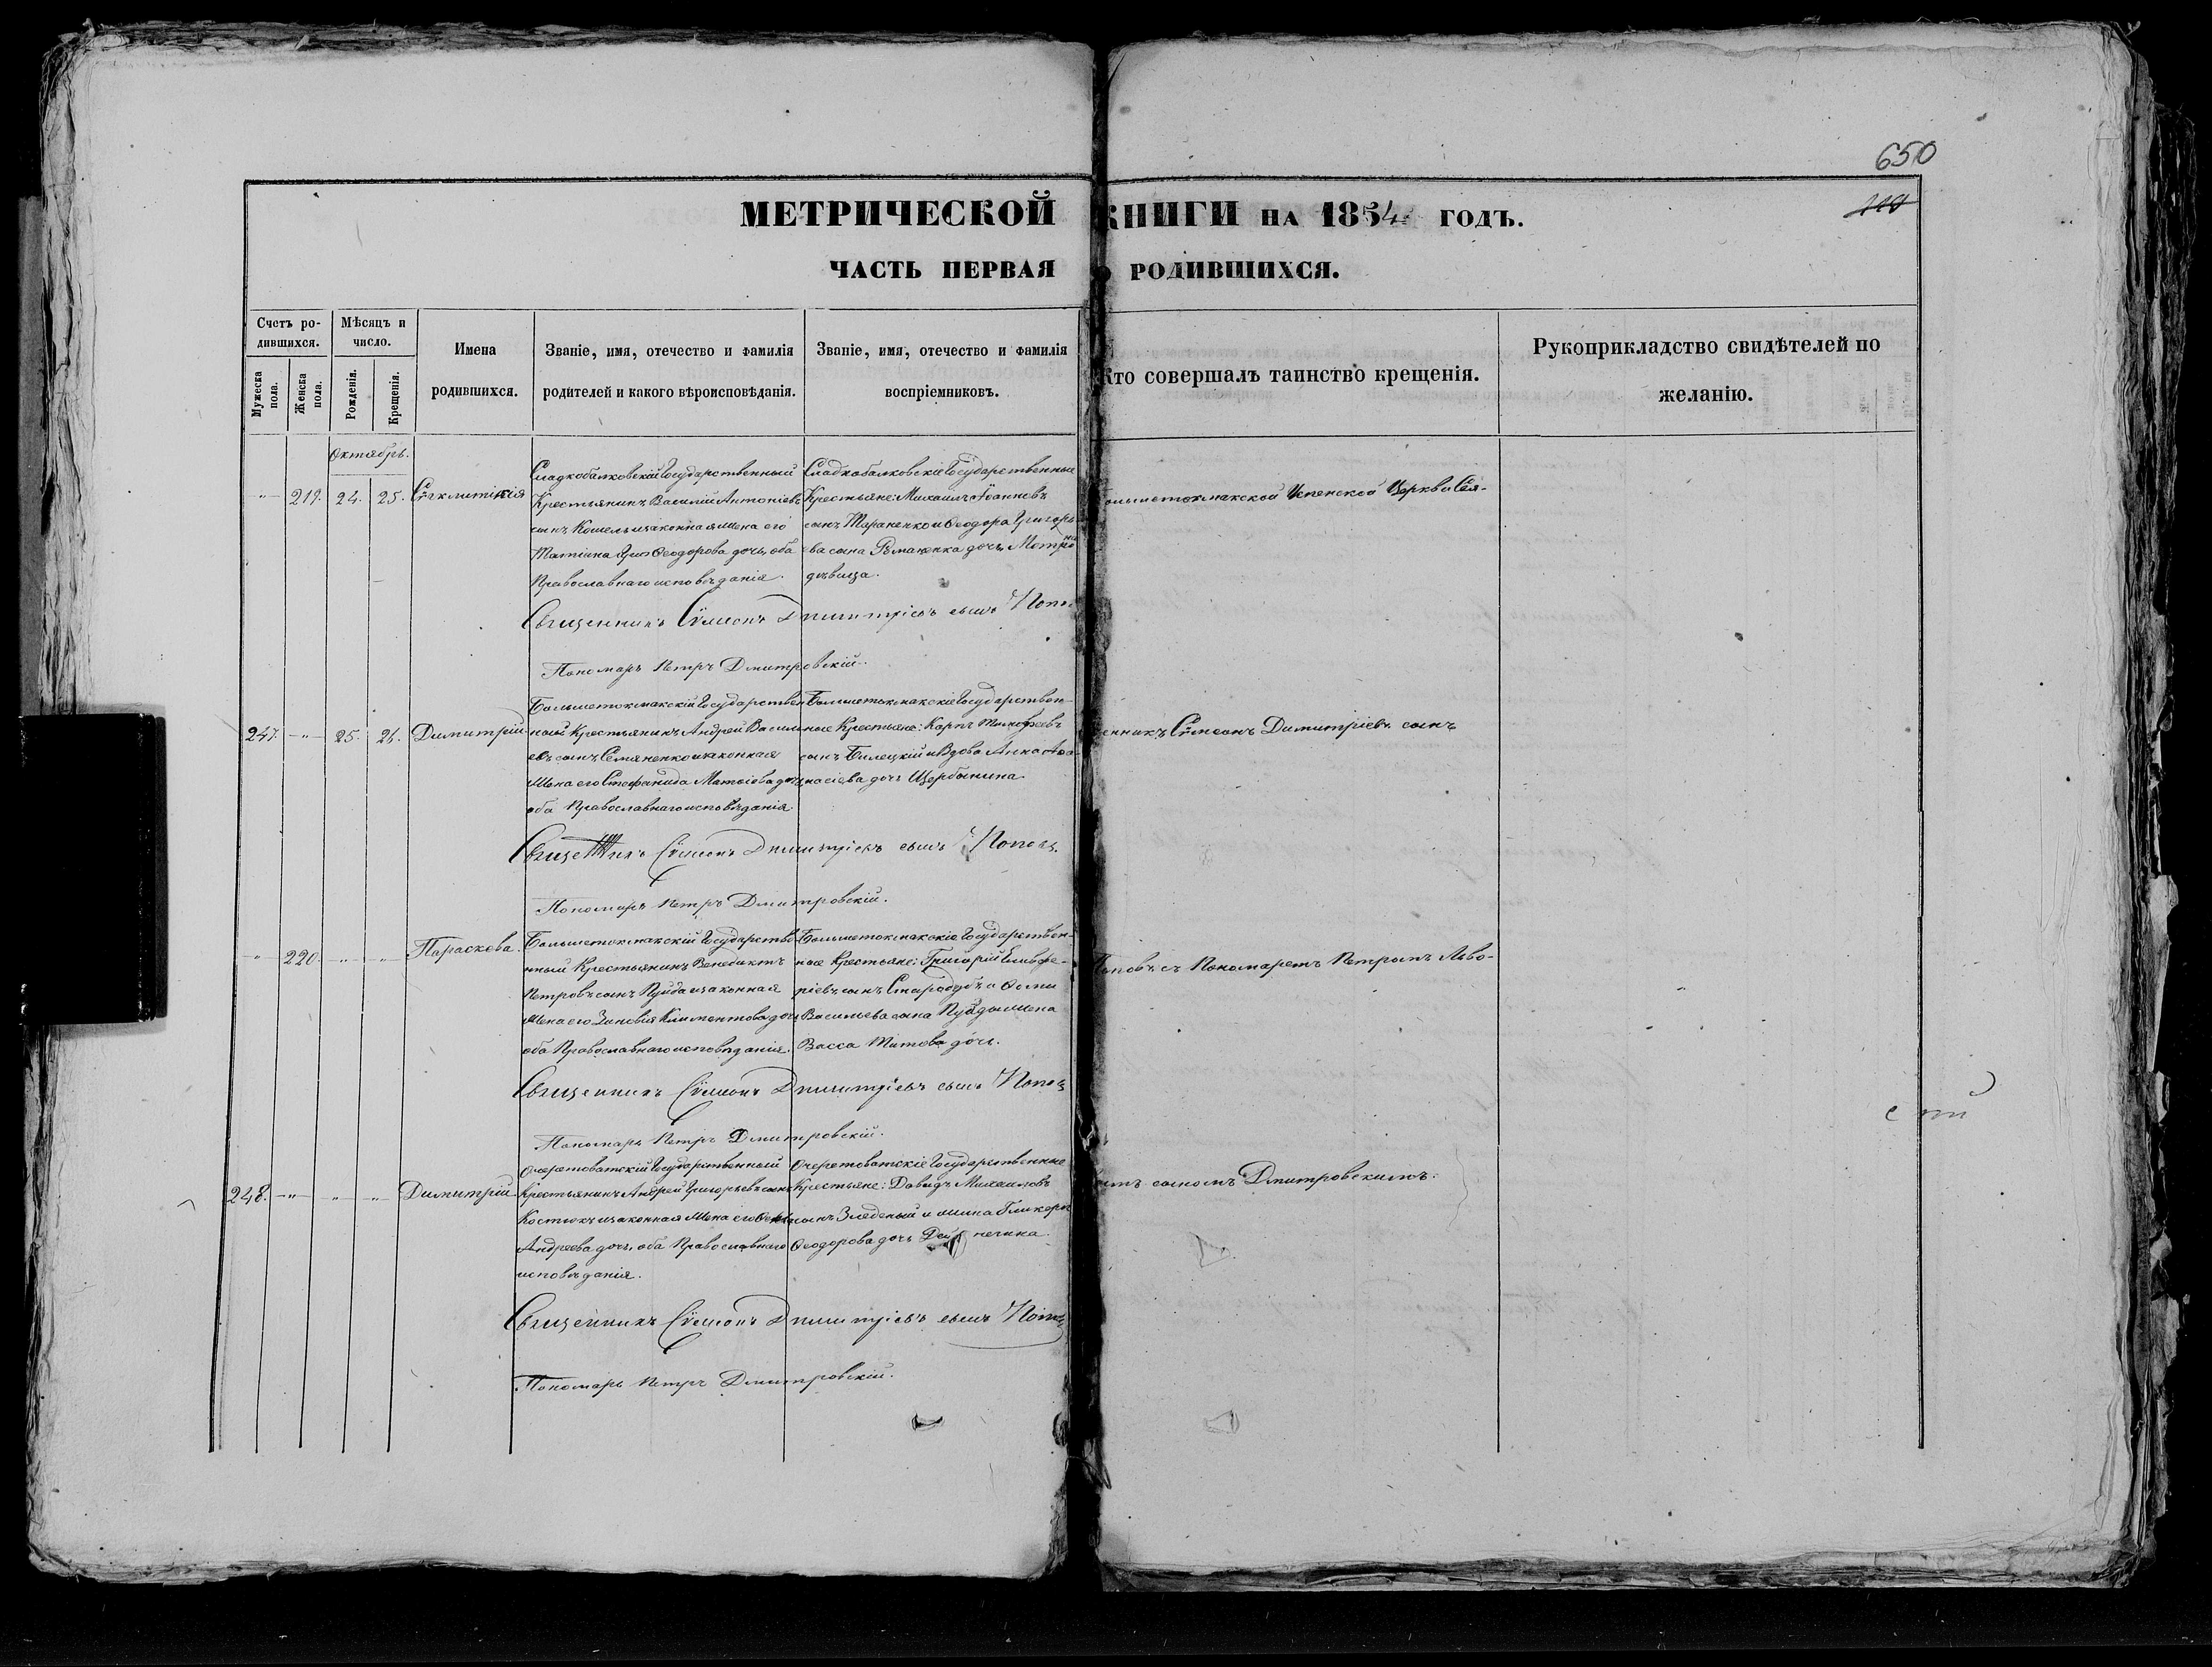 650
МЕТРИЧЕСКОЙ КНИГИ НА 1854 ГОДЪ.
ЧАСТЬ ПЕРВАЯ О РОДИВШИХСЯ.
Счетъ ро-
дившихся.
Мужеска пола.
Женска пола.
Мѣсяцъ и
число.
Рожденія.
Крещенія.
Имена
родившихся.
Званіе, имя, отечество и фамилія
родителей и какого вѣроисповѣданія.
Званіе, имя, отечество и фамилія
воспріемниковъ.
Кто совершалъ таинство крещенія.
Рукоприкладство свидѣтелей по
желанію.
Октябрь.
" 219. 24. 25. Сѵнклитикія
Сладкобалковскій Государственный
Крестьянинъ Василій Антоніевъ
сынъ Кошель и законная жена его
Татіана Ѳеодорова дочь, оба
Православнаго исповѣданія.
Сладкобалковскіе Государственные
Крестьяне: Михаилъ Іоанновъ
сынъ Тараненко и Ѳеодора Григорь-
ева сына Романенка дочь Матрона
дѣвица.
Большетокмакской Успенской Церкви Свя-
Священникъ Сѵмеонъ Дмитріевъ сынъ Поповъ
Пономарь Петръ Дмитровскій.
247. " 25. 26. Димитрій
Большетокмакскій Государствен
ный Крестьянинъ Андрей Василь
евъ сынъ Семененко и законная
жена его Стефанида Матѳіева дочь,
оба Православнаго исповѣданія.
Большетокмакскіе Государствен-
ные Крестьяне: Карпъ Тимоѳеевъ
сынъ Билецкій и Вдова Анна Аѳа-
насіева дочь Щербинина.
щенникъ Сѵмеонъ Димитріевъ сынъ
Священникъ Сѵмеонъ Дмитріевъ сынъ Поповъ.
Пономарь Петръ Дмитровскій.
" 220. " " Параскева.
Большетокмакскій Государстве-
нный Крестьянинъ Венедиктъ
Петровъ сынъ Пуйда и законная
жена его Зиновія Климентова дочь
оба Православнаго исповѣданія.
Большетокмакскіе Государствен-
ные Крестьяне: Григорій Елевѳе-
ріевъ сынъ Стародубъ и Ѳомы
Васильева сына Пуйды жена
Васса Титова дочь.
Поповъ съ Пономаремъ Петромъ Льво-
Священникъ Сѵмеонъ Дмитріевъ сынъ Поповъ
Пономарь Петръ Дмитровскій.
248. " " " Димитрій
Очеретоватскій Государственный
Крестьянинъ Андрей Григорьевъ сынъ
Костюкъ и законная жена его
Андреева дочь, оба Православнаго
исповѣданія.
Очеретоватскіе Государственные
Крестьяне: Давидъ Михаиловъ
сынъ Зледеный и Гликерія
Ѳеодорова дочь
вымъ сыномъ Дмитровскимъ.
Священникъ Сѵмеонъ Дмитріевъ сынъ Поповъ
Пономарь Петръ Дмитровскій.